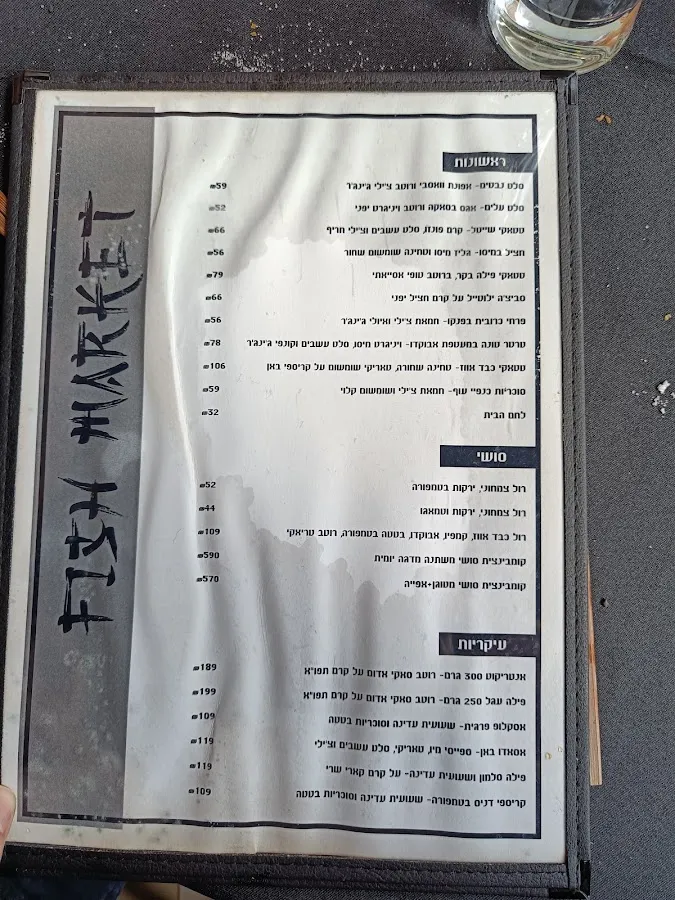 FISH MARKET
ראשונות
סלט נבטים- אפונת וואסבי ורוטב צ'ילי ג'ינג'ר ₪59
סלט עלים- אגס בסאקה ורוטב ויניגרט יפני ₪52
סטאקי שייטל- קרם פונזו, סלט עשבים וצ'ילי חריף ₪66
חציל במיסו- גליז מיסו וטחינה שומשום שחור ₪56
סטאקי פילה בקר, ברוטב טופי אסייאתי ₪79
סביצ'ה ילוטייל על קרם חציל יפני ₪66
פרחי כרובית בפנקו- חמאת צ'ילי ואיולי ג'ינג'ר ₪56
טרטר טונה במעטפת אבוקדו- ויניגרט מיסו, סלט עשבים וקונפי ג'ינג'ר ₪78
סטאקי כבד אווז- טחינה שחורה, טאריקי שומשום על קריספי באן ₪106
סוכריות כנפיי עוף- חמאת צ'ילי ושומשום קלוי ₪59
לחם הבית ₪32
סושי
רול צמחוני, ירקות בטמפורה ₪52
רול צמחוני, ירקות וטמאגו ₪44
רול כבד אווז, קמפיו, אבוקדו, בטטה בטמפורה, רוטב טריאקי ₪109
קומבינצית סושי משתנה מדגה יומית ₪590
קומבינצית סושי מטוגן+אפייה ₪570
עיקריות
אנטריקוט 300 גרם- רוטב סאקי אדום על קרם תפו"א ₪189
פילה עגל 250 גרם- רוטב סאקי אדום על קרם תפו"א ₪199
אסקלופ פרגית- שעועית עדינה וסוכריות בטטה ₪109
אסאדו באן- ספייסי מיו, טאריקי, סלט עשבים וצ'ילי ₪119
פילה סלמון ושעועית עדינה- על קרם קארי שרי ₪119
קריספי דניס בטמפורה- שעועית עדינה וסוכריות בטטה ₪109